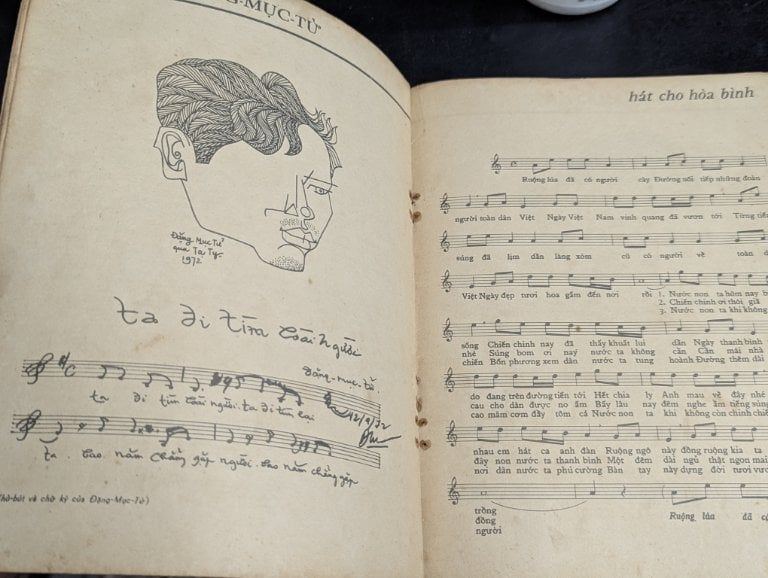 G-MỤC-TỬ
Đặng Mục Tử
qua Tạ Tỵ
1972
ta đi tìm loài người
Đặng-mục-tử
ta đi tìm loài người. ta đi tìm loài
ta. bao năm chẳng gặp người. bao năm chẳng gặp
bút và chữ ký của Đặng-Mục-Tử)
hát cho hòa bình
Ruộng lúa đã có người cày Đường nối tiếp những đoàn
người toàn dân Việt Ngày Việt Nam vinh quang đã vươn tới Từng tiến
súng đã lịm dần làng xóm cũ có người về toàn d
Việt Ngày đẹp tươi hoa gấm đến nơi rồi 1. Nước non ta hôm nay b
2. Chiến chinh ơi thôi giã
3. Nước non ta khi không
sống Chiến chinh nay đã thấy khuất lui dần Ngày thanh bình
nhé Súng bom ơi nay nước ta không cần Cần mái nhà
chiến Bốn phương xem dân nước ta tung hoành Đường thêm dài
do đang trên đường tiến tới Hết chia ly Anh mau về đây nhé
cau cho dân được no ấm Bấy lâu nay đêm nghe ầm tiếng súng
cao mâm cơm đầy tôm cá Nước non ta khi không còn chinh chiế
nhau em hát ca anh đàn Ruộng ngô này đồng ruộng kia ta
đây non nước ta thanh bình Một đêm dài ngủ thật ngon mai
nơi dân nước ta phú cường Bàn tay này dựng đời tươi vươ
trồng
đồng
người
Ruộng lúa đã c